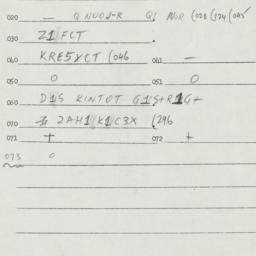 020 — Q NUOJ-R Q1 NUR (020 (124 (045
030 Z1 FCT .
040 KRE5XCT (046 041 —
050 0 051 0
060 D1S KINTOT G1S+R1G+
070 2AH1 K1C3X (296
071 + 072 +
073 0